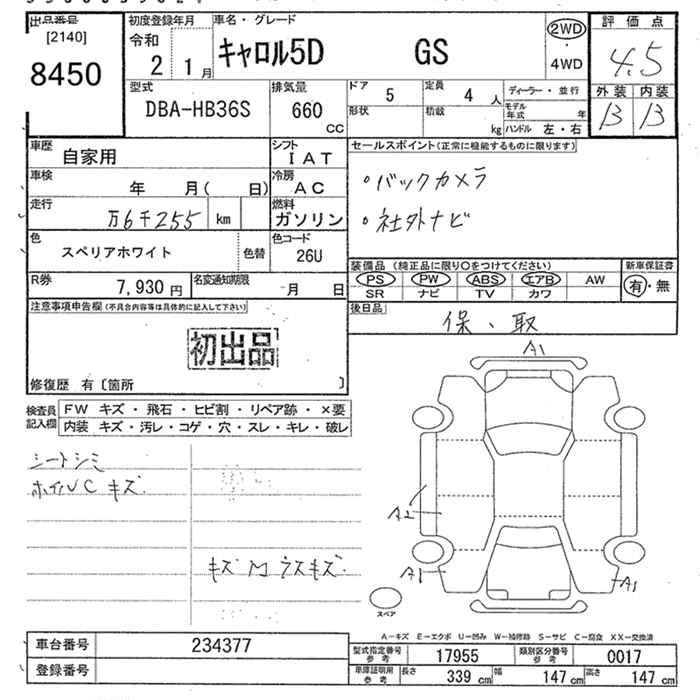 出品番号
[2140]
8450
初度登録年月
令和
2 1月
車名・グレード
キャロル5D GS
2WD
・
4WD
評価点
4.5
外装 内装
B B
型式
DBA-HB36S
排気量
660
CC
ドア 5
定員 4 人
形状
積載 kg
ディーラー・並行
モデル年式 年
ハンドル 左・右
車歴 自家用
シフト
IAT
車検 年 月( 日)
冷房
AC
走行 万6千255 km
燃料
ガソリン
色
スペリアホワイト
色替
色コード
26U
R券 7,930円
名変通知期限 月 日
セールスポイント(正常に機能するものに限ります)
・バックカメラ
・社外ナビ
装備品 (純正品に限り○をつけてください)
PS PW ABS エアB AW
SR ナビ TV カワ
新車保証書
有・無
後日品
保、取
注意事項申告欄(不具合内容等は具体的に記入して下さい)
初出品
修復歴 有〔箇所 〕
検査員
記入欄
FW キズ・飛石・ヒビ割・リペア跡・×要
内装 キズ・汚レ・コゲ・穴・スレ・キレ・破レ
シートシミ
ホイルC キズ
キズ M ウスキズ
A1
A2
A1
A1
スペア
A―キズ E―エクボ U―凹み W―補修跡 S―サビ C―腐食 XX―交換済
車台番号 234377
登録番号
型式指定番号
参考
17955
類別区分番号
参考
0017
車庫証明用
参考
長さ 339 cm
幅 147 cm
高さ 147 cm